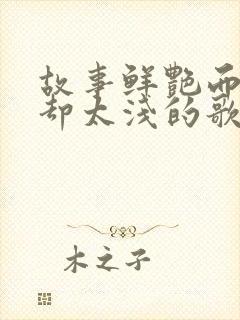 故事鲜艳而
却太浅的歌
木之子